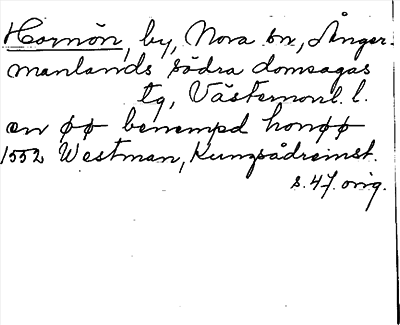 Hornön, by, Nora sn, Ånger-
manlands södra domsagas
tg, Västernorrl. l.
en ØØ benempd honØØ
1552 Westman, Kungsådreinst.
s. 47. orig.